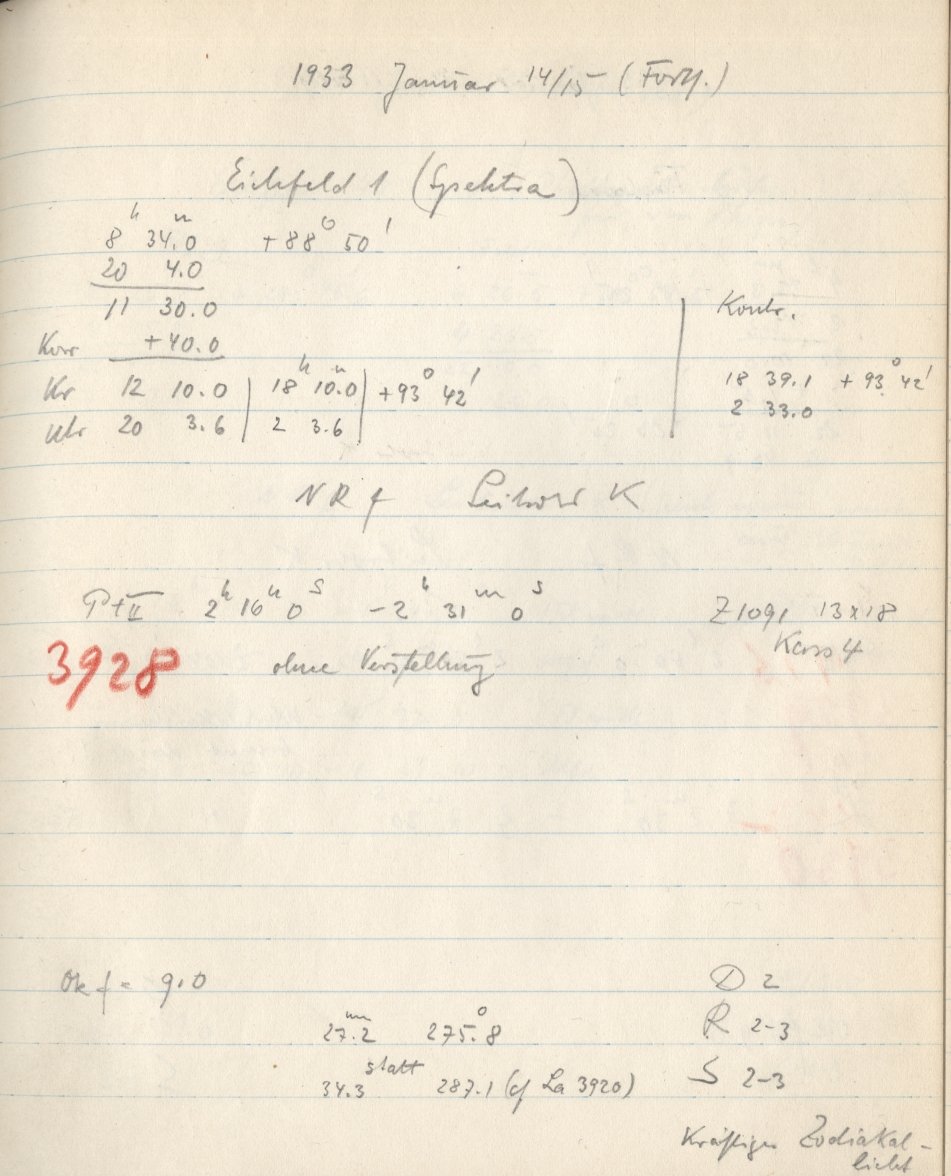 1933 Januar 14/15 (Forts.)
Eichfeld 1 (Spektra)
8h 34.0m +88° 50'
20 4.0
11 30.0
Korr +40.0
Kr 12 10.0 | 18h 10.0m | +93° 42'
Uhr 20 3.6 | 2 3.6
Kontr.
18 39.1 +93° 42'
2 33.0
NRf K
Pt II 2h 16m 0s -2h 31m 0s
Z 1091 13x18
Kass 4
3928 ohne Verstellung
Ok f = 9.0
D 2
27.2m 275.8°
R 2-3
statt
34.3 287.1 (cf La 3920)
S 2-3
Kräftiges Zodiakal-
licht